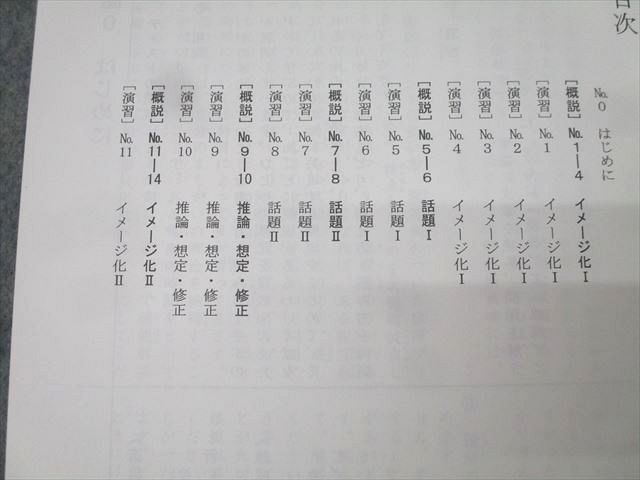 目次
№0 はじめに
［概説］№1―4 イメージ化Ⅰ
［演習］№1 イメージ化Ⅰ
［演習］№2 イメージ化Ⅰ
［演習］№3 イメージ化Ⅰ
［演習］№4 イメージ化Ⅰ
［概説］№5―6 話題Ⅰ
［演習］№5 話題Ⅰ
［演習］№6 話題Ⅰ
［概説］№7―8 話題Ⅱ
［演習］№7 話題Ⅱ
［演習］№8 話題Ⅱ
［概説］№9―10 推論・想定・修正
［演習］№9 推論・想定・修正
［演習］№10 推論・想定・修正
［概説］№11―14 イメージ化Ⅱ
［演習］№11 イメージ化Ⅱ